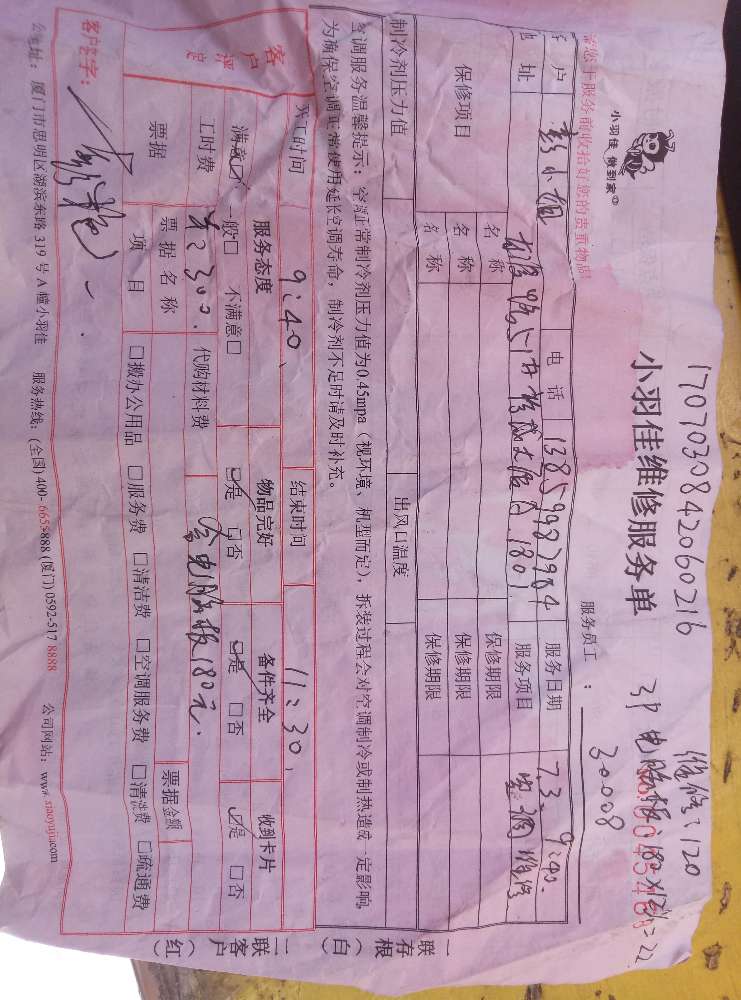 1707030842060216
维修：120
3P 电脑板：180
30008
小羽佳 做到家
小羽佳维修服务单
服务员工：
请您于服务前收拾好您的贵重物品
客户 彭小姐 电话 13859982984 服务日期 7.3. 9:40.
地址 服务项目 空调维修
保修项目 名称 保修期限
名称 保修期限
名称 保修期限
制冷剂压力值 出风口温度
空调服务温馨提示：空调正常制冷剂压力值为0.45mpa（视环境、机型而定），拆装过程会对空调制冷或制热造成一定影响,
为确保空调正常使用延长空调寿命，制冷剂不足时请及时补充。
开工时间 9:40、 结束时间 11:30、
客户评定 服务态度 物品完好 备件齐全 收到卡片
满意☑ 一般□ 不满意□ ☑是 □否 ☑是 □否 ☑是 □否
工时费 300. 代购材料费 含电脑板180元.
票据 票据名称 票据金额
项目 □搬办公用品 □服务费 □清洁费 □空调服务费 □清洗费 □疏通费
客户签字：
公司地址：厦门市思明区湖滨东路 319 号 A 幢小羽佳 服务热线：(全国) 400-6655-888 (厦门) 0592-517 8888 公司网站：www.xiaoyujia.com
一联存根（白）
二联客户（红）